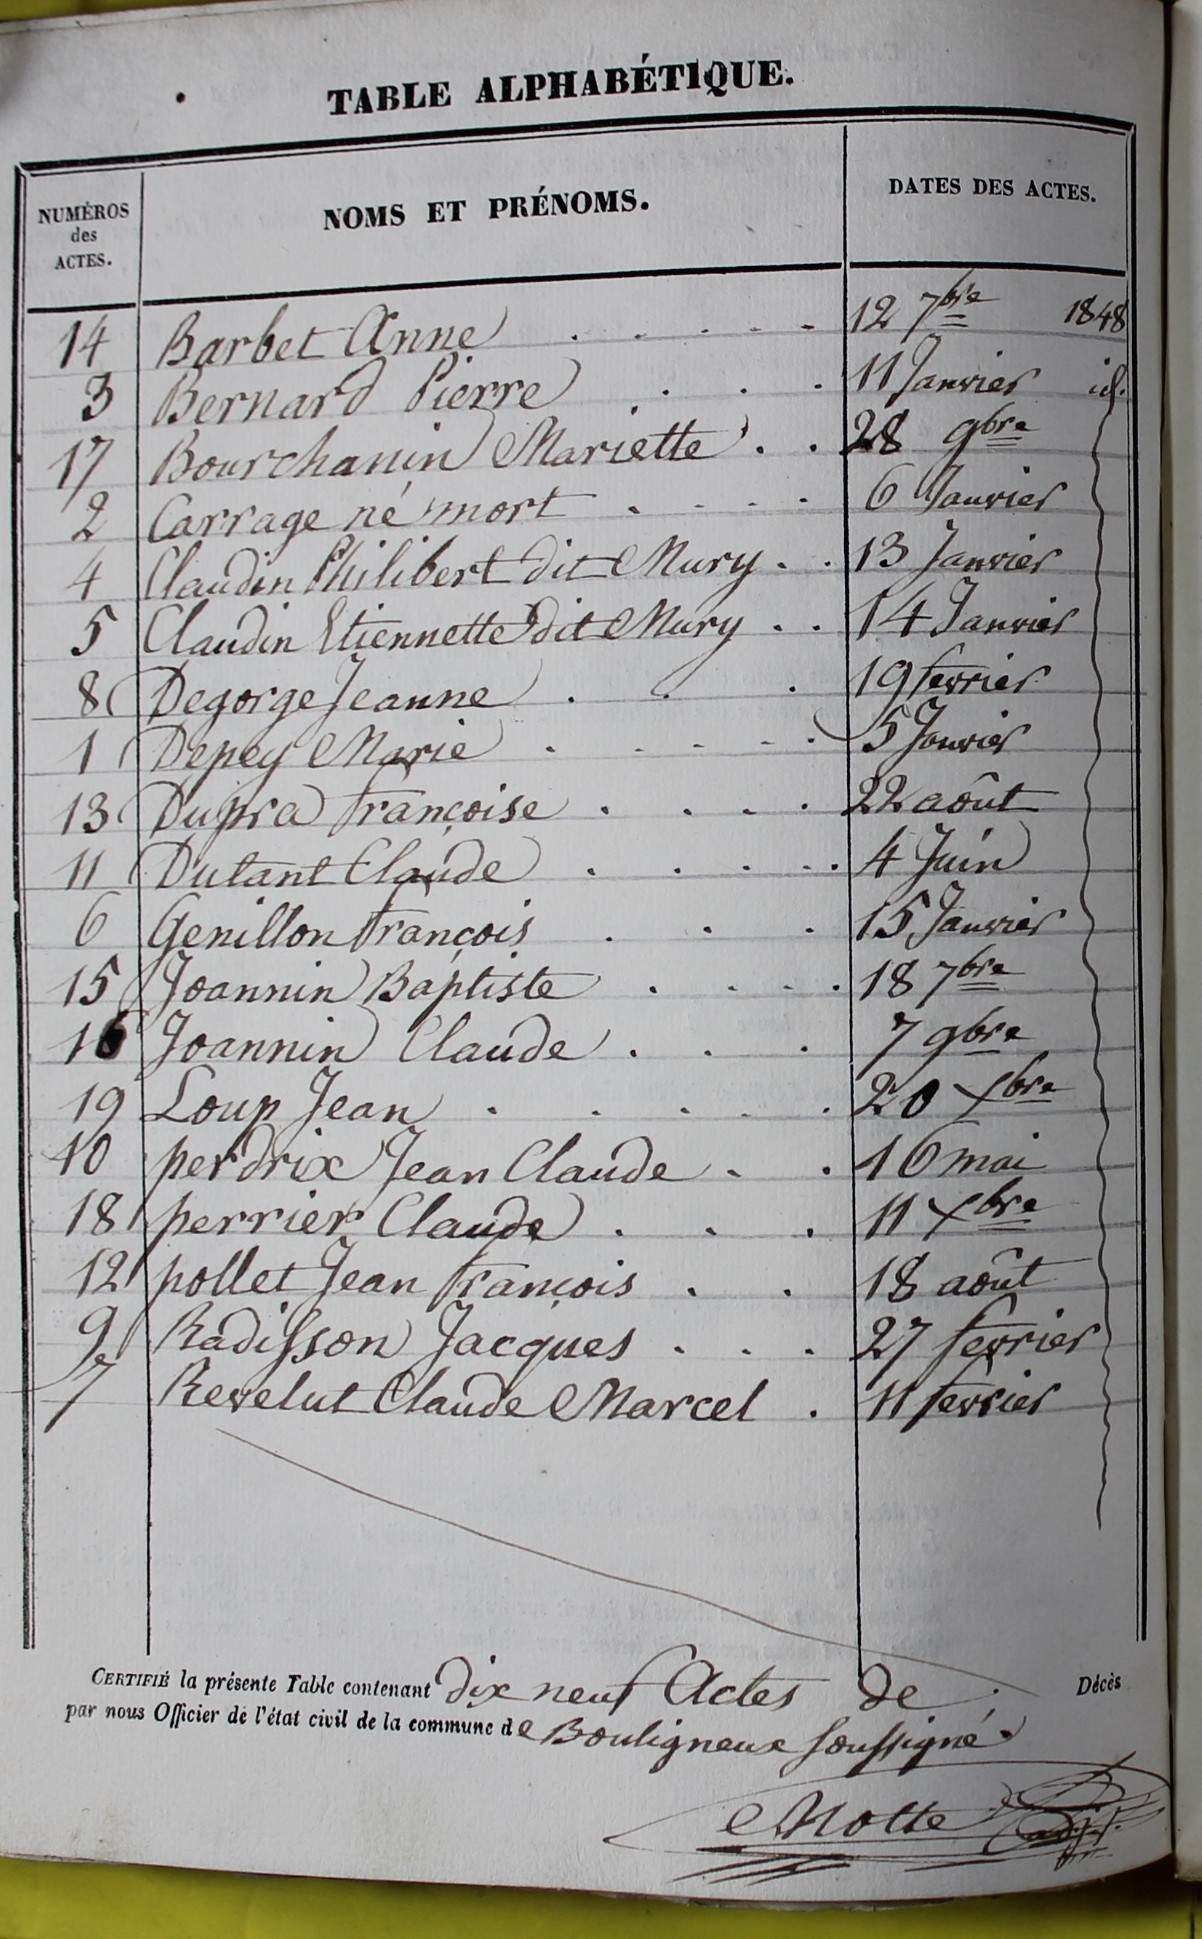 TABLE ALPHABÉTIQUE.
NUMÉROS des ACTES. NOMS ET PRÉNOMS. DATES DES ACTES.
14 Barbet Anne . . . . . 12 7bre 1848
3 Bernard Pierre . . . 11 Janvier id.
17 Bourchanin Mariette . . 28 9bre
2 Carrage né mort . . . . 6 Janvier
4 Claudin Philibert dit Mury . . 13 Janvier
5 Claudin Etiennette dit Mury . . 14 Janvier
8 Degorge Jeanne . . . 19 fevrier
1 Depey Marie . . . . . 5 Janvier
13 Dupra françoise . . . . 22 août
11 Dutant Claude . . . . . 4 Juin
6 Genillon françois . . . 15 Janvier
15 Joannin Baptiste . . . . 18 7bre
16 Joannin Claude . . . 7 9bre
19 Loup Jean . . . . . 20 Xbre
10 perdrix Jean Claude . . 16 mai
18 perrier Claude . . . 11 Xbre
12 pollet Jean françois . . 18 août
9 Radisson Jacques . . . 27 fevrier
7 Revelut Claude Marcel . 11 fevrier
CERTIFIÉ la présente Table contenant dix neuf Actes de Décès
par nous Officier de l'état civil de la commune de Bouligneux soussigné.
Motte